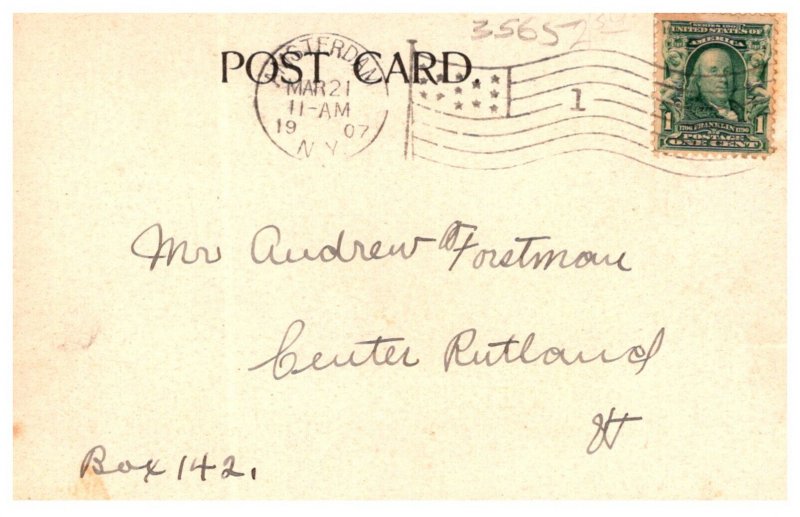 35657
POST CARD.
AMSTERDAM
MAR 21
11-AM
19 07
N.Y.
1
SERIES 1902
UNITED STATES OF
AMERICA
1 FRANKLIN 1
POSTAGE
ONE CENT
Mr Andrew Forstman
Center Rutland
Vt
Box 142.